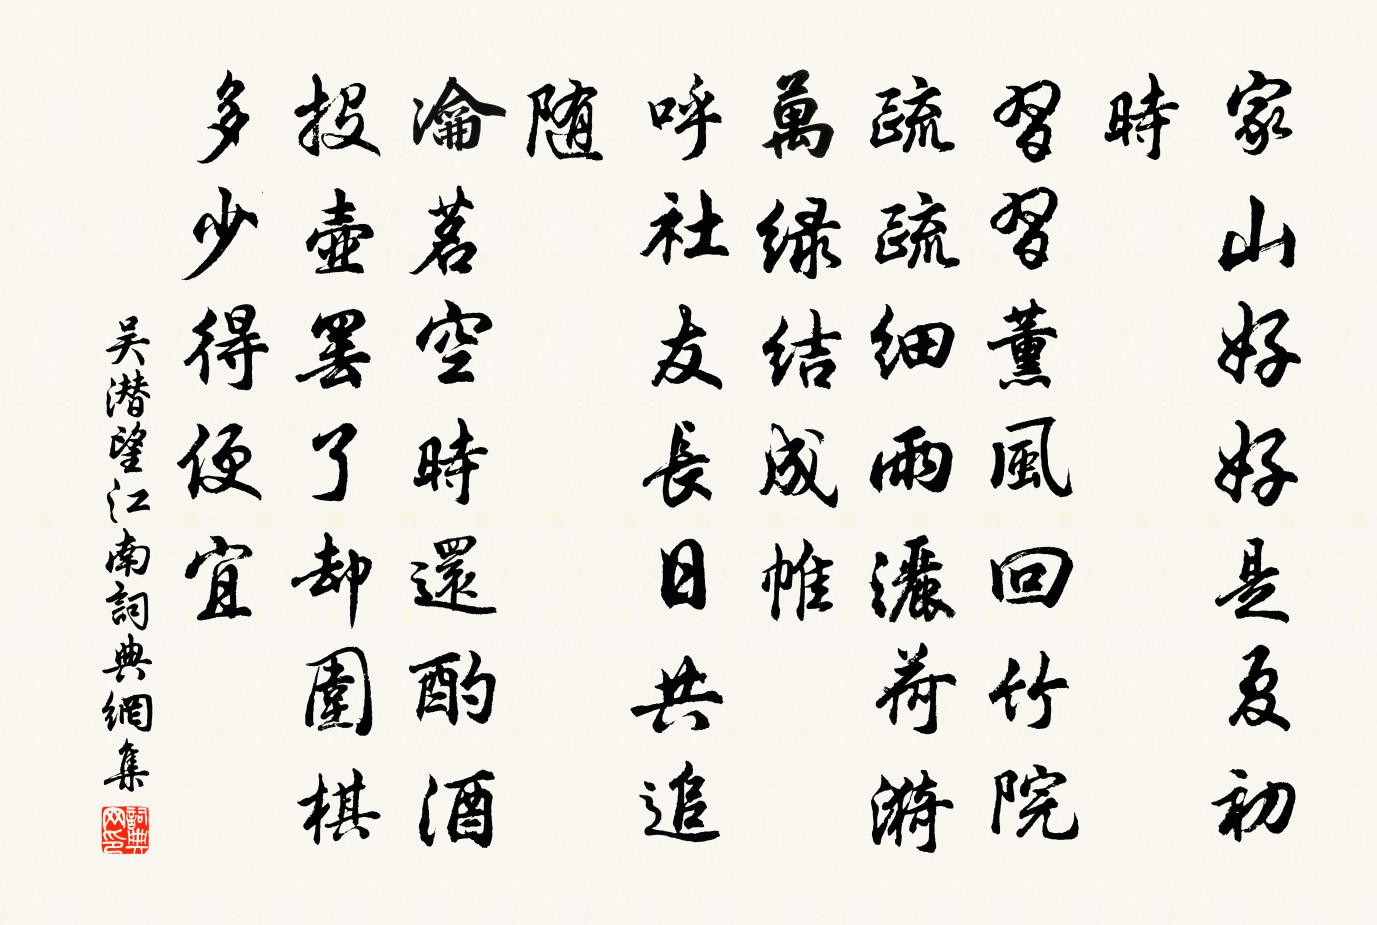 家山好好是夏初
時
習習薰風回竹院
疏疏細雨灑荷漪
萬緑結成帷
呼社友長日共追
随
瀹茗空時還酌酒
投壺罢了却圍棋
多少得便宜
吴潜望江南詞典網集
詞典網印